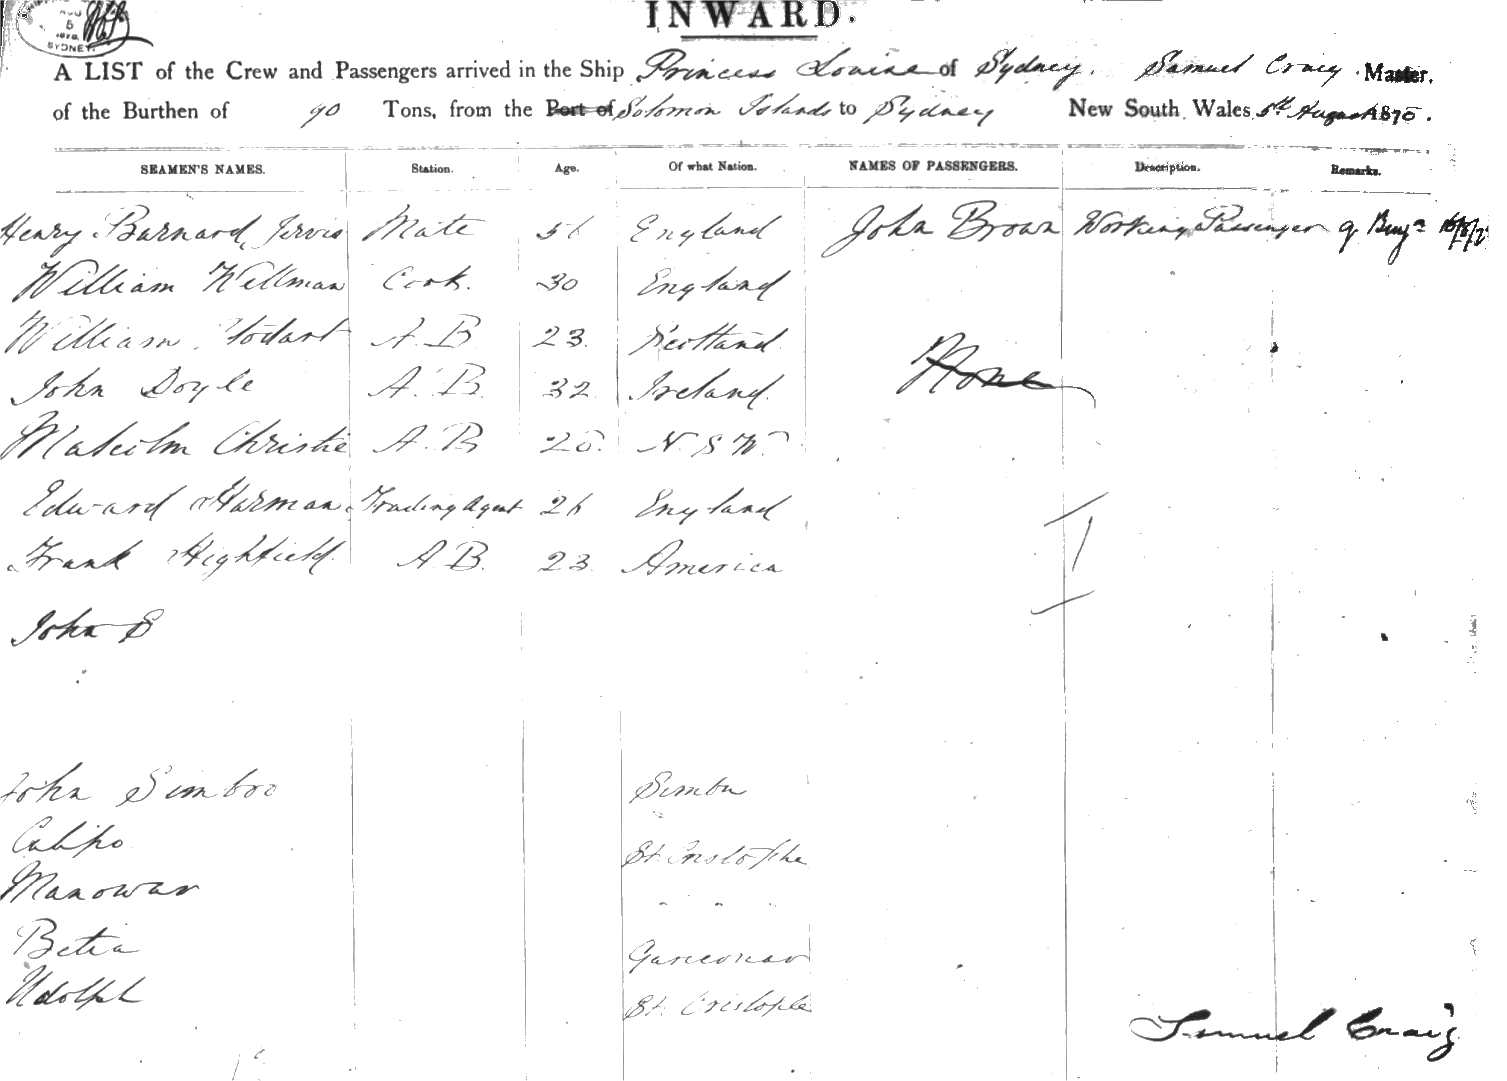 SYDNEY
INWARD.
A LIST of the Crew and Passengers arrived in the Ship Princess Louise of Sydney, Samuel Craig Master,
of the Burthen of 90 Tons, from the Port of Solomon Islands to Sydney New South Wales 5th August 1875.
SEAMEN'S NAMES. Station. Age. Of what Nation. NAMES OF PASSENGERS. Description. Remarks.
Henry Barnard Jervis Mate 56 England John Brown Working Passenger
William Wellman Cook. 30 England
William Stodart A.B 23. Scotland
None
John Doyle A.B. 32 Ireland.
Malcolm Christie A.B 25. N.S.W.
Edward Harman Trading Agent 26 England
Frank Highfield. A.B. 23. America
John S
John Simboo Simbu
Calipo St Cristophe
Manowar " "
Betia
Udolph St. Cristople
Samuel Craig